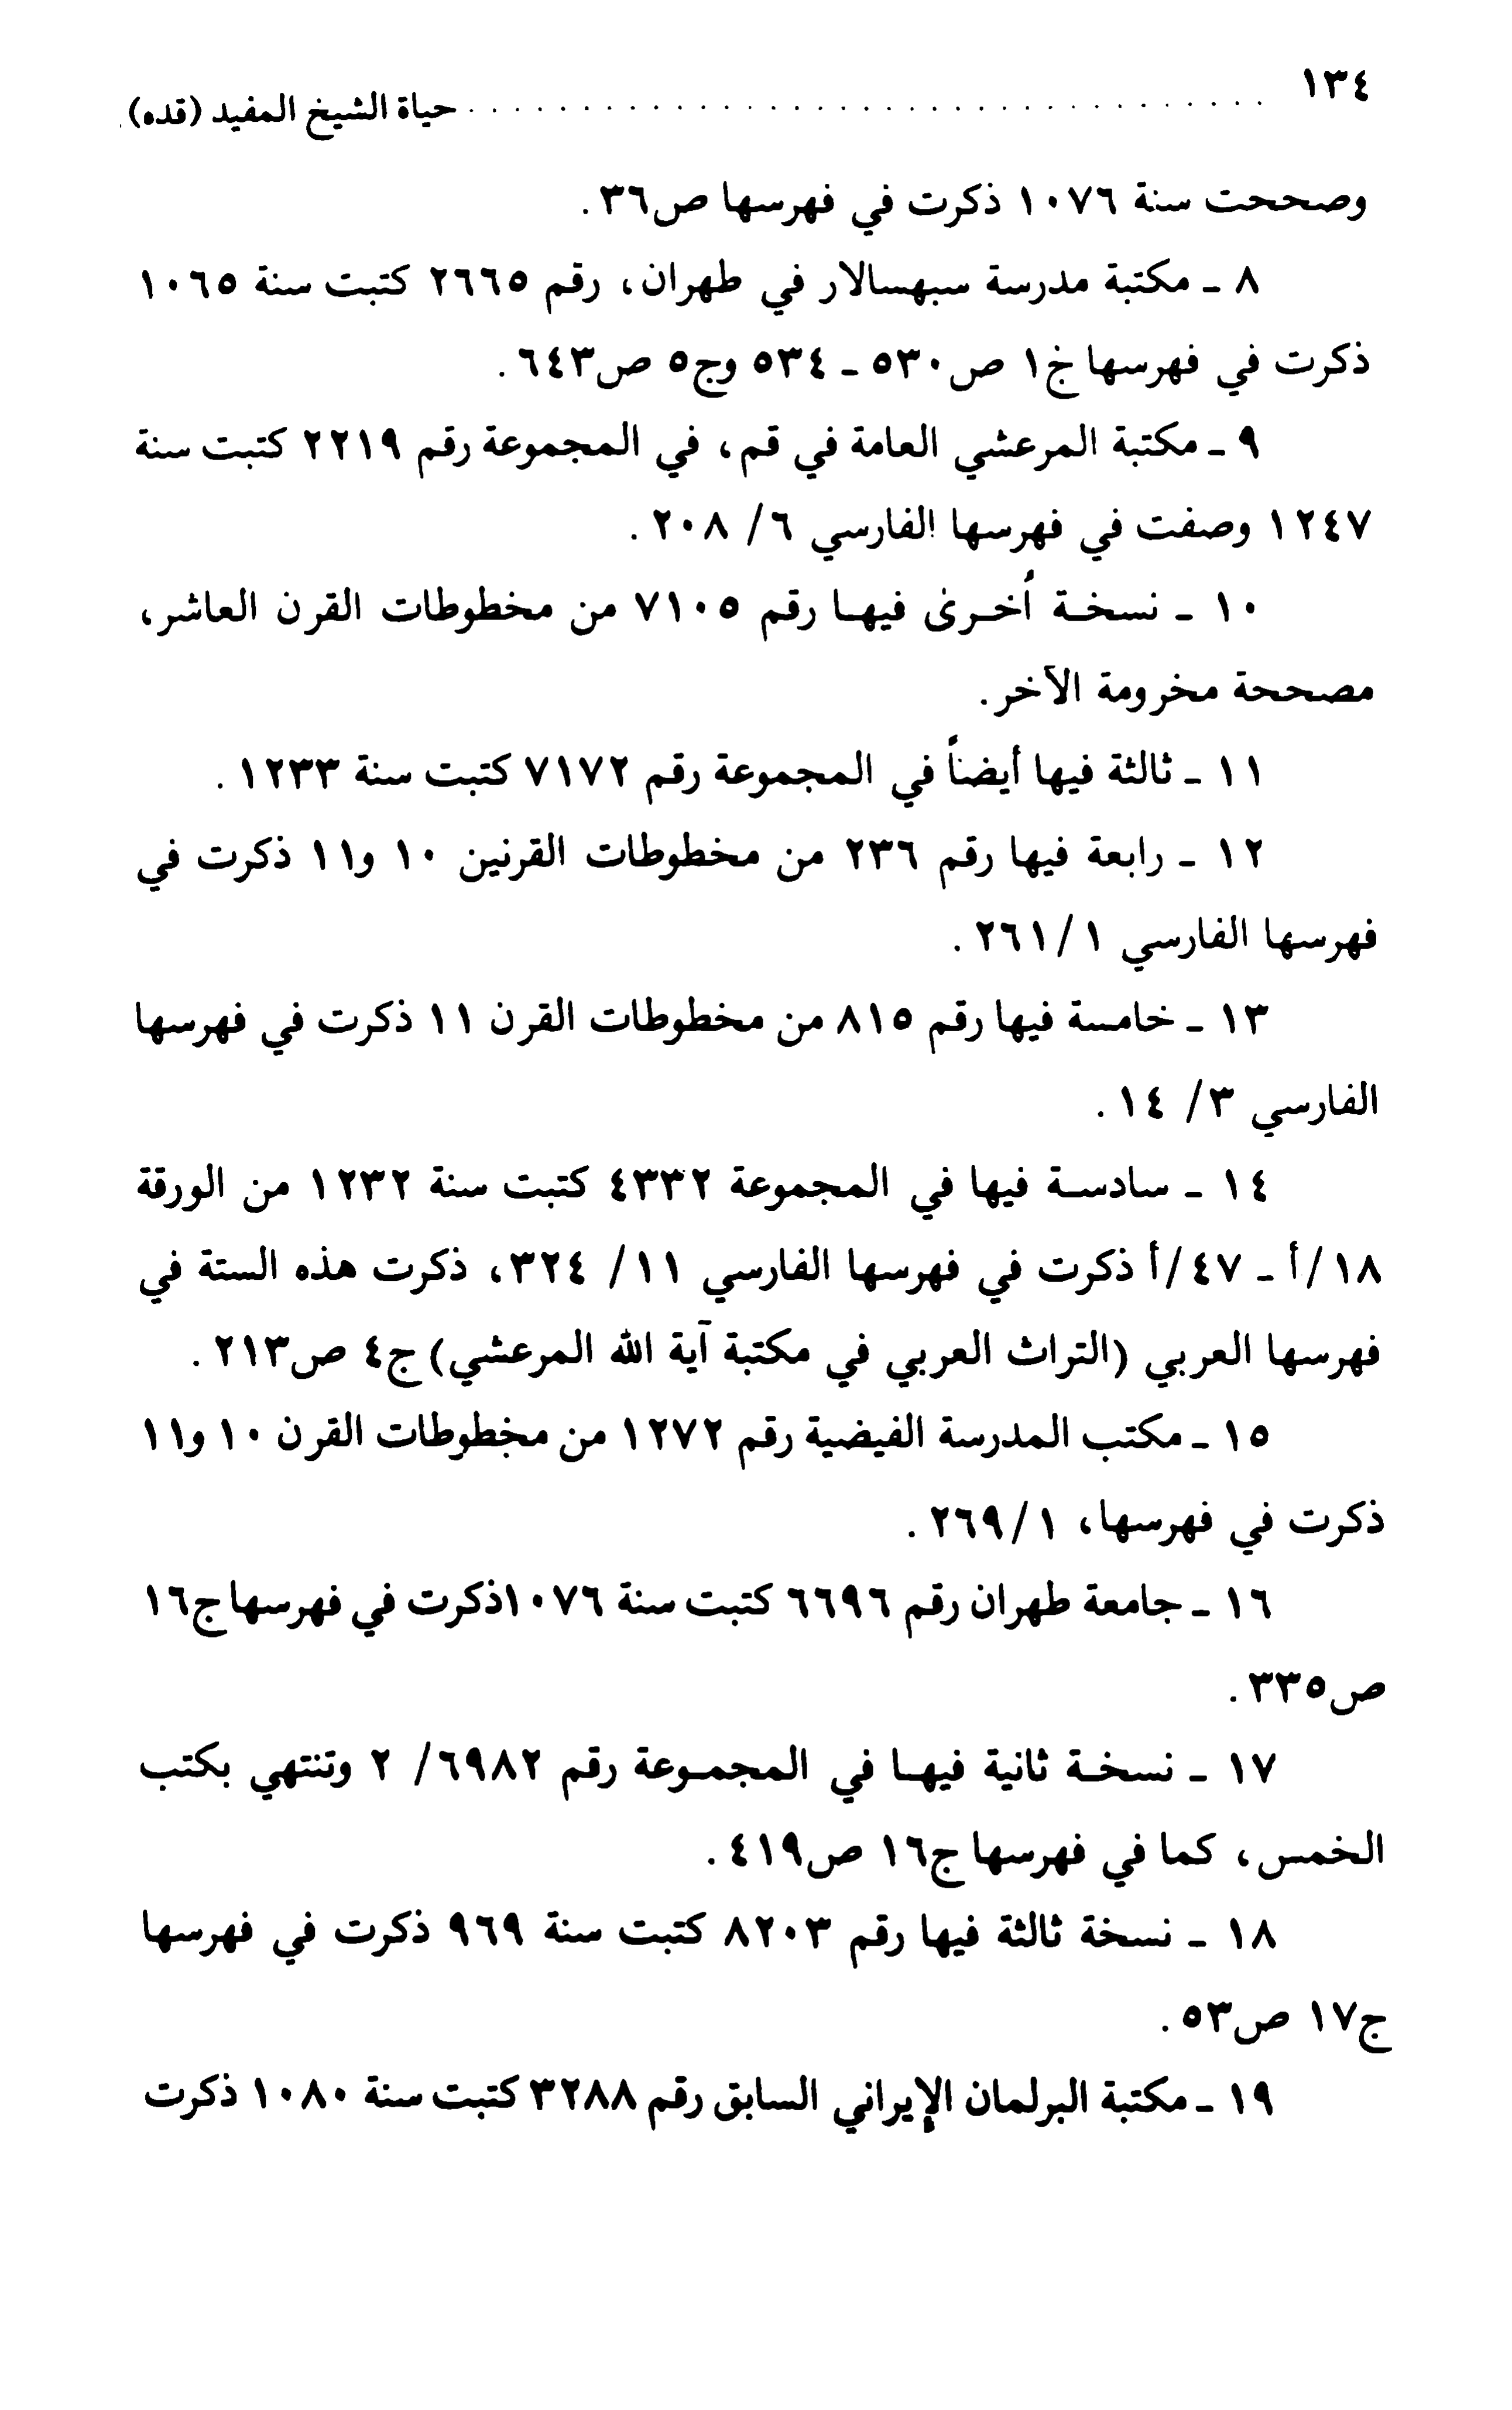 ١٣٤ . . . . . . . . . . . . . . . . . . . . . . . . . حياة الشيخ المفيد (قده)
وصححت سنة ١٠٧٦ ذكرت في فهرسها ص٣٦.
٨ ـ مكتبة مدرسة سبهسالار في طهران، رقم ٢٦٦٥ كتبت سنة ١٠٦٥
ذكرت في فهرسها خ١ ص٥٣٠ ـ ٥٣٤ وج٥ ص٦٤٣.
٩ ـ مكتبة المرعشي العامة في قم، في المجموعة رقم ٢٢١٩ كتبت سنة
١٢٤٧ وصفت في فهرسها الفارسي ٦/ ٢٠٨.
١٠ ـ نسخـة أُخـرىٰ فيهـا رقم ٧١٠٥ من مخطوطات القرن العاشر،
مصححة مخرومة الآخر.
١١ ـ ثالثة فيها أيضاً في المجموعة رقم ٧١٧٢ كتبت سنة ١٢٣٣.
١٢ ـ رابعة فيها رقم ٢٣٦ من مخطوطات القرنين ١٠ و١١ ذكرت في
فهرسها الفارسي ١/ ٢٦١.
١٣ ـ خامسة فيها رقم ٨١٥ من مخطوطات القرن ١١ ذكرت في فهرسها
الفارسي ٣/ ١٤.
١٤ ـ سادسـة فيها في المجموعة ٤٣٣٢ كتبت سنة ١٢٣٢ من الورقة
١٨/أ ـ ٤٧/أ ذكرت في فهرسها الفارسي ١١/ ٣٢٤، ذكرت هذه الستة في
فهرسها العربي (التراث العربي في مكتبة آية الله المرعشي) ج٤ ص٢١٣.
١٥ ـ مكتب المدرسة الفيضية رقم ١٢٧٢ من مخطوطات القرن ١٠ و١١
ذكرت في فهرسها، ١/ ٢٦٩.
١٦ ـ جامعة طهران رقم ٦٦٩٦ كتبت سنة ١٠٧٦ذكرت في فهرسها ج١٦
ص٣٣٥.
١٧ ـ نسخـة ثانية فيهـا في المجمـوعة رقم ٦٩٨٢/ ٢ وتنتهي بكتب
الخمس، كما في فهرسها ج١٦ ص٤١٩.
١٨ ـ نسخة ثالثة فيها رقم ٨٢٠٣ كتبت سنة ٩٦٩ ذكرت في فهرسها
ج١٧ ص٥٣.
١٩ ـ مكتبة البرلمان الإيراني السابق رقم ٣٢٨٨ كتبت سنة ١٠٨٠ ذكرت